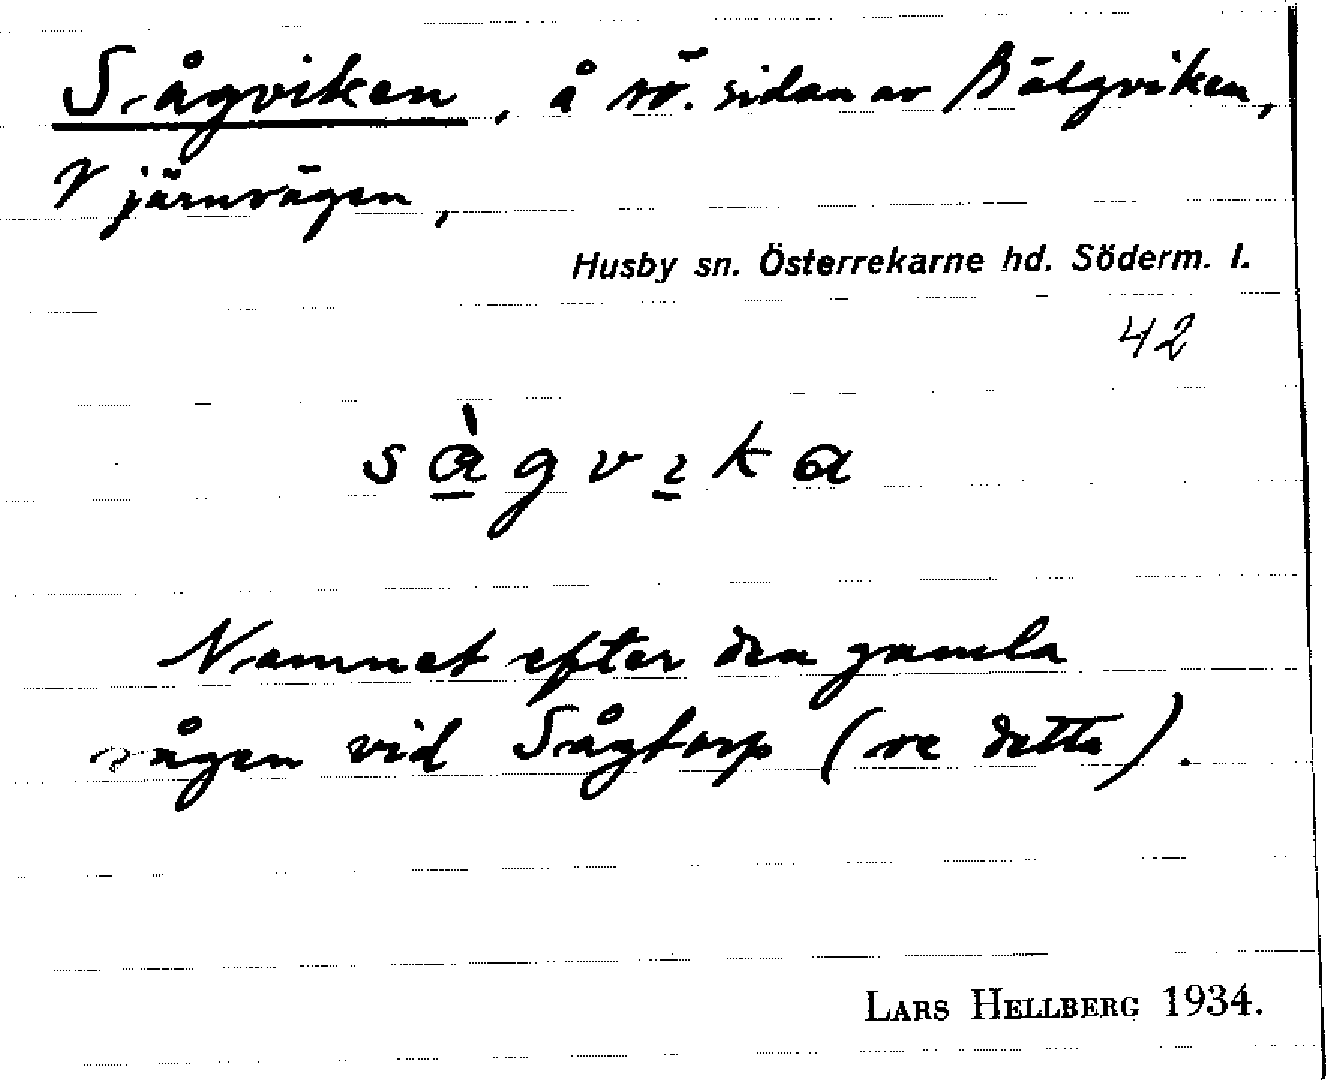 Sågviken, å sö. sidan av Bälgviken,
V järnvägen,
Husby sn. Österrekarne hd. Söderm. l.
42
sàgvıka
Namnet efter den gamla
sågen vid Sågtorp (se detta).
LARS HELLBERG 1934.